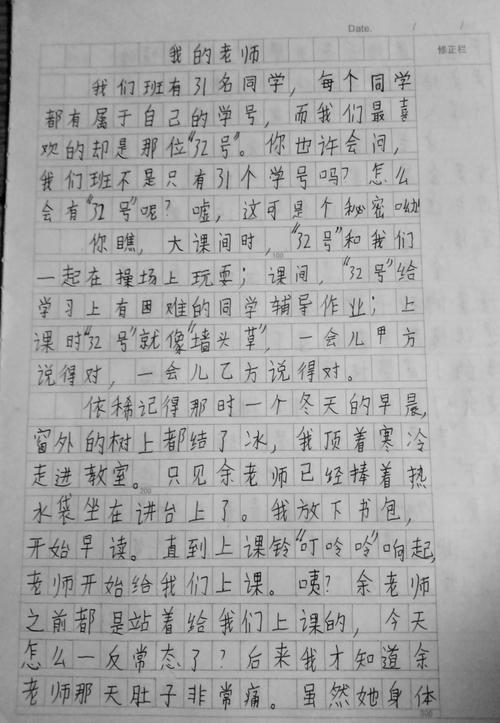 Date. / /
修正栏
我的老师
我们班有31名同学，每个同学
都有属于自己的学号，而我们最喜
欢的却是那位"32号"。你也许会问，
我们班不是只有31个学号吗？怎么
会有"32号"呢？嘘，这可是个秘密呦
你瞧，大课间时，"32号"和我们
100
一起在操场上玩耍；课间，"32号"给
学习上有困难的同学辅导作业；上
课时"32号"就像"墙头草"，一会儿甲方
说得对，一会儿乙方说得对。
依稀记得那时一个冬天的早晨，
窗外的树上都结了冰，我顶着寒冷
走进教室。只见余老师已经捧着热
200
水袋坐在讲台上了。我放下书包，
开始早读。直到上课铃"叮呤呤"响起，
老师开始给我们上课。咦？余老师
之前都是站着给我们上课的，今天
怎么一反常态了？后来我才知道余
老师那天肚子非常痛。虽然她身体
300